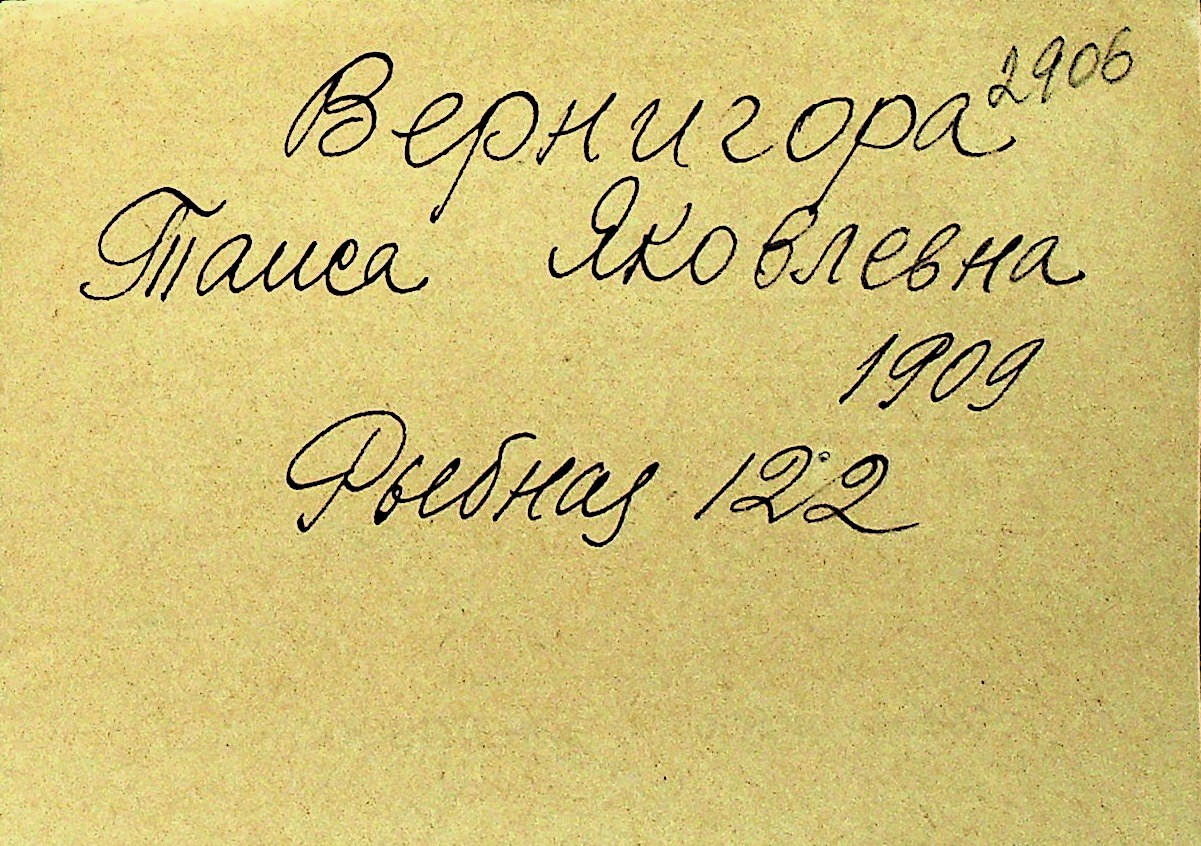 Вернигора 2906
Таиса Яковлевна
1909
Рыбная 122